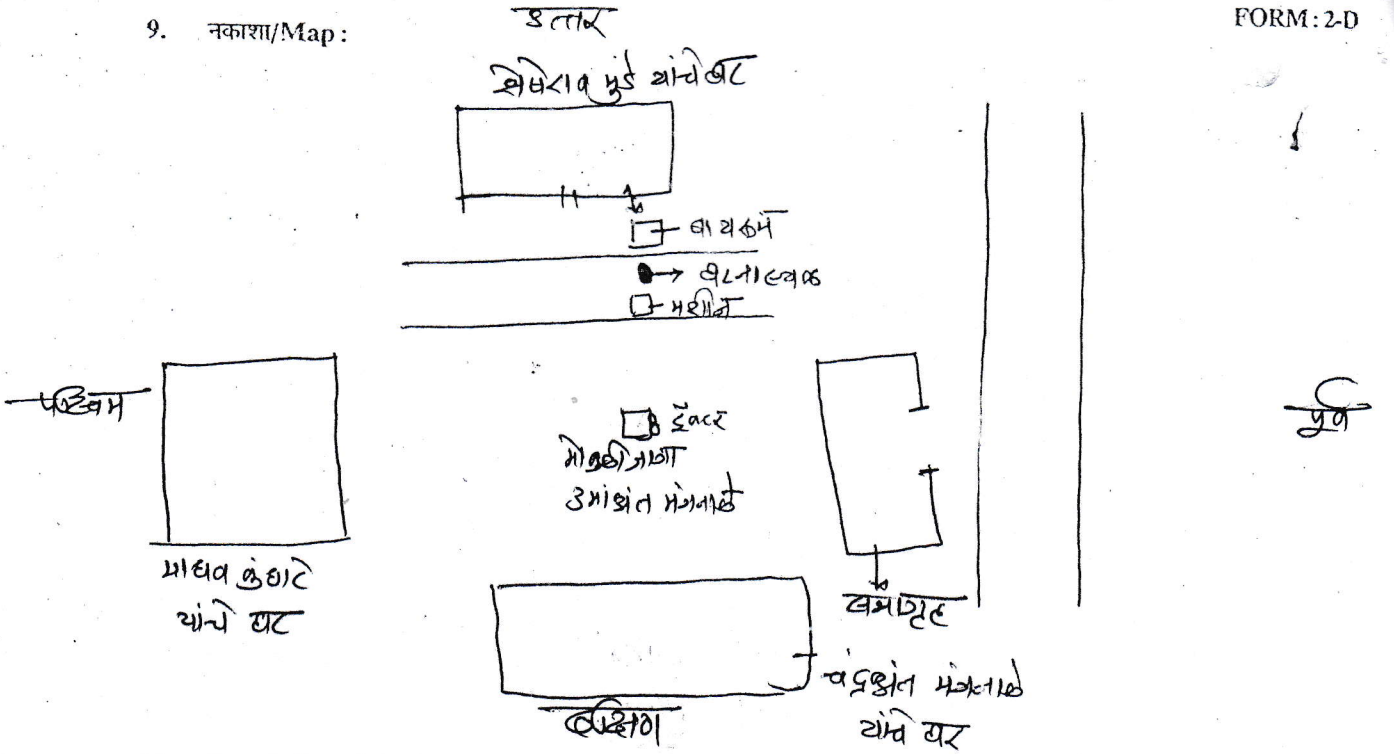 9. नकाशा/Map :
उत्तर
FORM : 2-D
शेषेराव मुंडे यांचे घर
बाथरूम
घटनास्थळ
मशीन
पश्चिम
पूर्व
ट्रॅक्टर
मोकळी जागा
उमाकांत मंगनाळे
माधव कुंघाटे
यांचे घर
सभागृह
चंद्रकांत मंगनाळे
यांचे घर
दक्षिण